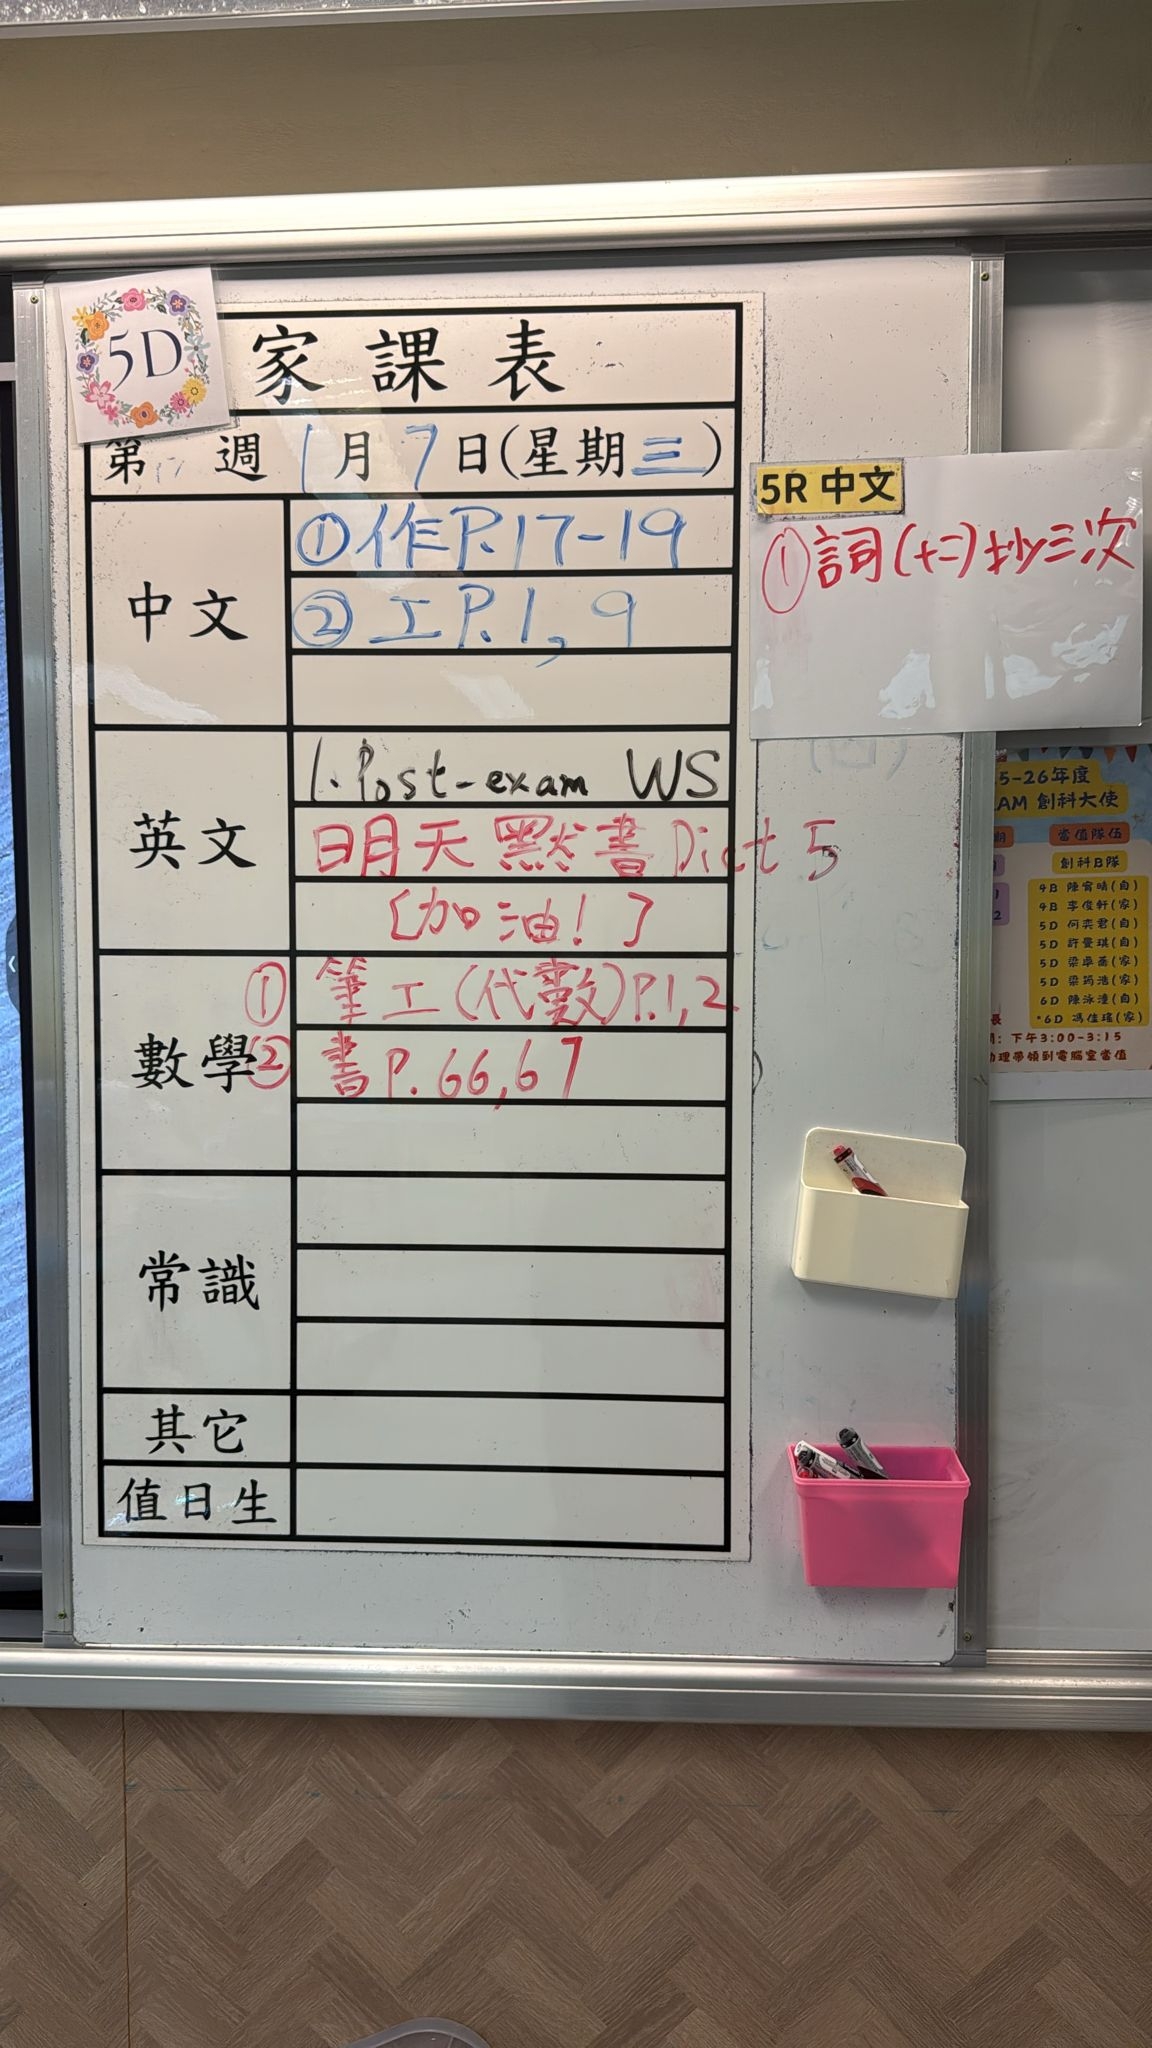 5D
家課表
第 週 1月7日(星期三)
中文
①作P.17-19
②工P.1, 9
英文
1. Post-exam WS
明天 默書 Dict 5
[加油!]
數學
① 筆工(代數)P.1,2
② 書P.66,67
常識
其它
值日生
5R 中文
①詞(十二)抄三次
5-26年度
AM 創科大使
期 當值隊伍
創科B隊
4B 陳宥晴(自)
4B 李俊軒(家)
5D 何奕君(自)
5D 許曼琪(自)
5D 梁卓喬(家)
5D 梁筠浩(家)
6D 陳泳潼(自)
*6D 馮佳瑤(家)
下午3:00-3:15
助理帶領到電腦室當值